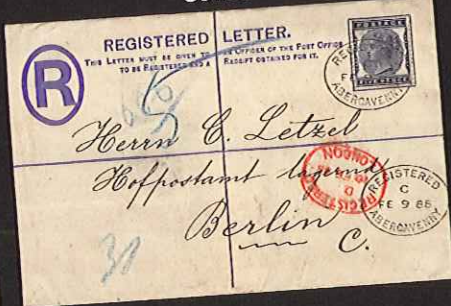 REGISTERED LETTER.
THIS LETTER MUST BE GIVEN TO AN OFFICER OF THE POST OFFICE
TO BE REGISTERED AND A RECEIPT OBTAINED FOR IT.
R
POSTAGE
FIVE PENCE
ABERGAVENNY
Herrn C. Letzel
Hofpostamt lagernd
Berlin
C.
REGISTERED
LONDON
REGISTERED
C
FE 9 88
ABERGAVENNY